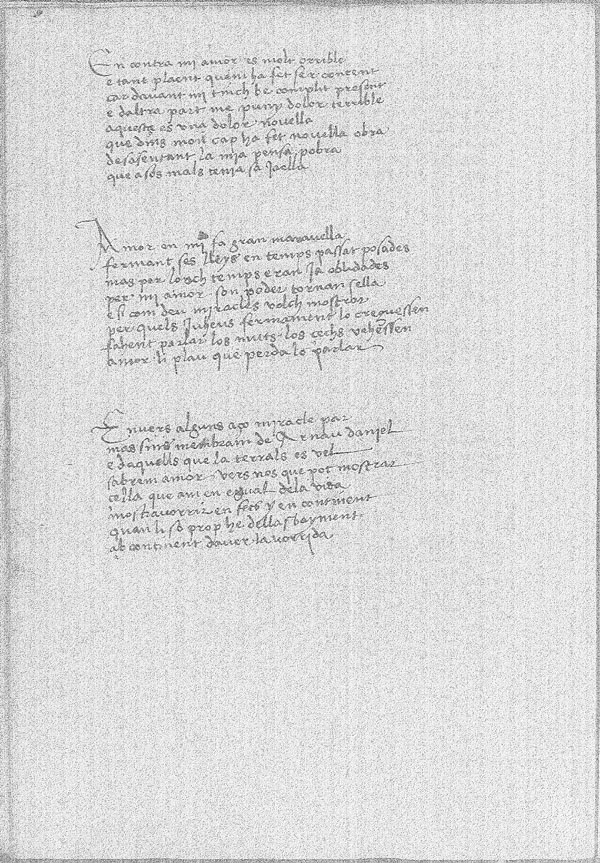 En contra mi amor es molt orrible
e tant plaent quem ha fet ser content
car davant mi tinch be complit present
e daltra part me puny dolor terrible
aquesta es una dolor novella
que dins mon cap ha fet novella obra
desasentant la mia pensa pobra
que a sos mals tenia sa jaella
Amor en mi fa gran maravella
fermant ses lleys en temps passat posades
mas per lonch temps eran ja oblidades
per mi amor son poder tornan sella
e si com deu miracles volch mostrar
per quels Juheus fermament lo creguessen
fahent parlar los muts los cechs vehessen
amor li plau que perda lo parlar
Envers alguns aço miracle par
mas sins membram de Arnau daniel
e daquells que la terrals es vel
sabrem amor vers nos que pot mostrar
cella que am en egual dela vida
mostravorrir en fets y en continent
quan li so prop he della sbayment
ab continent daver la vorrida